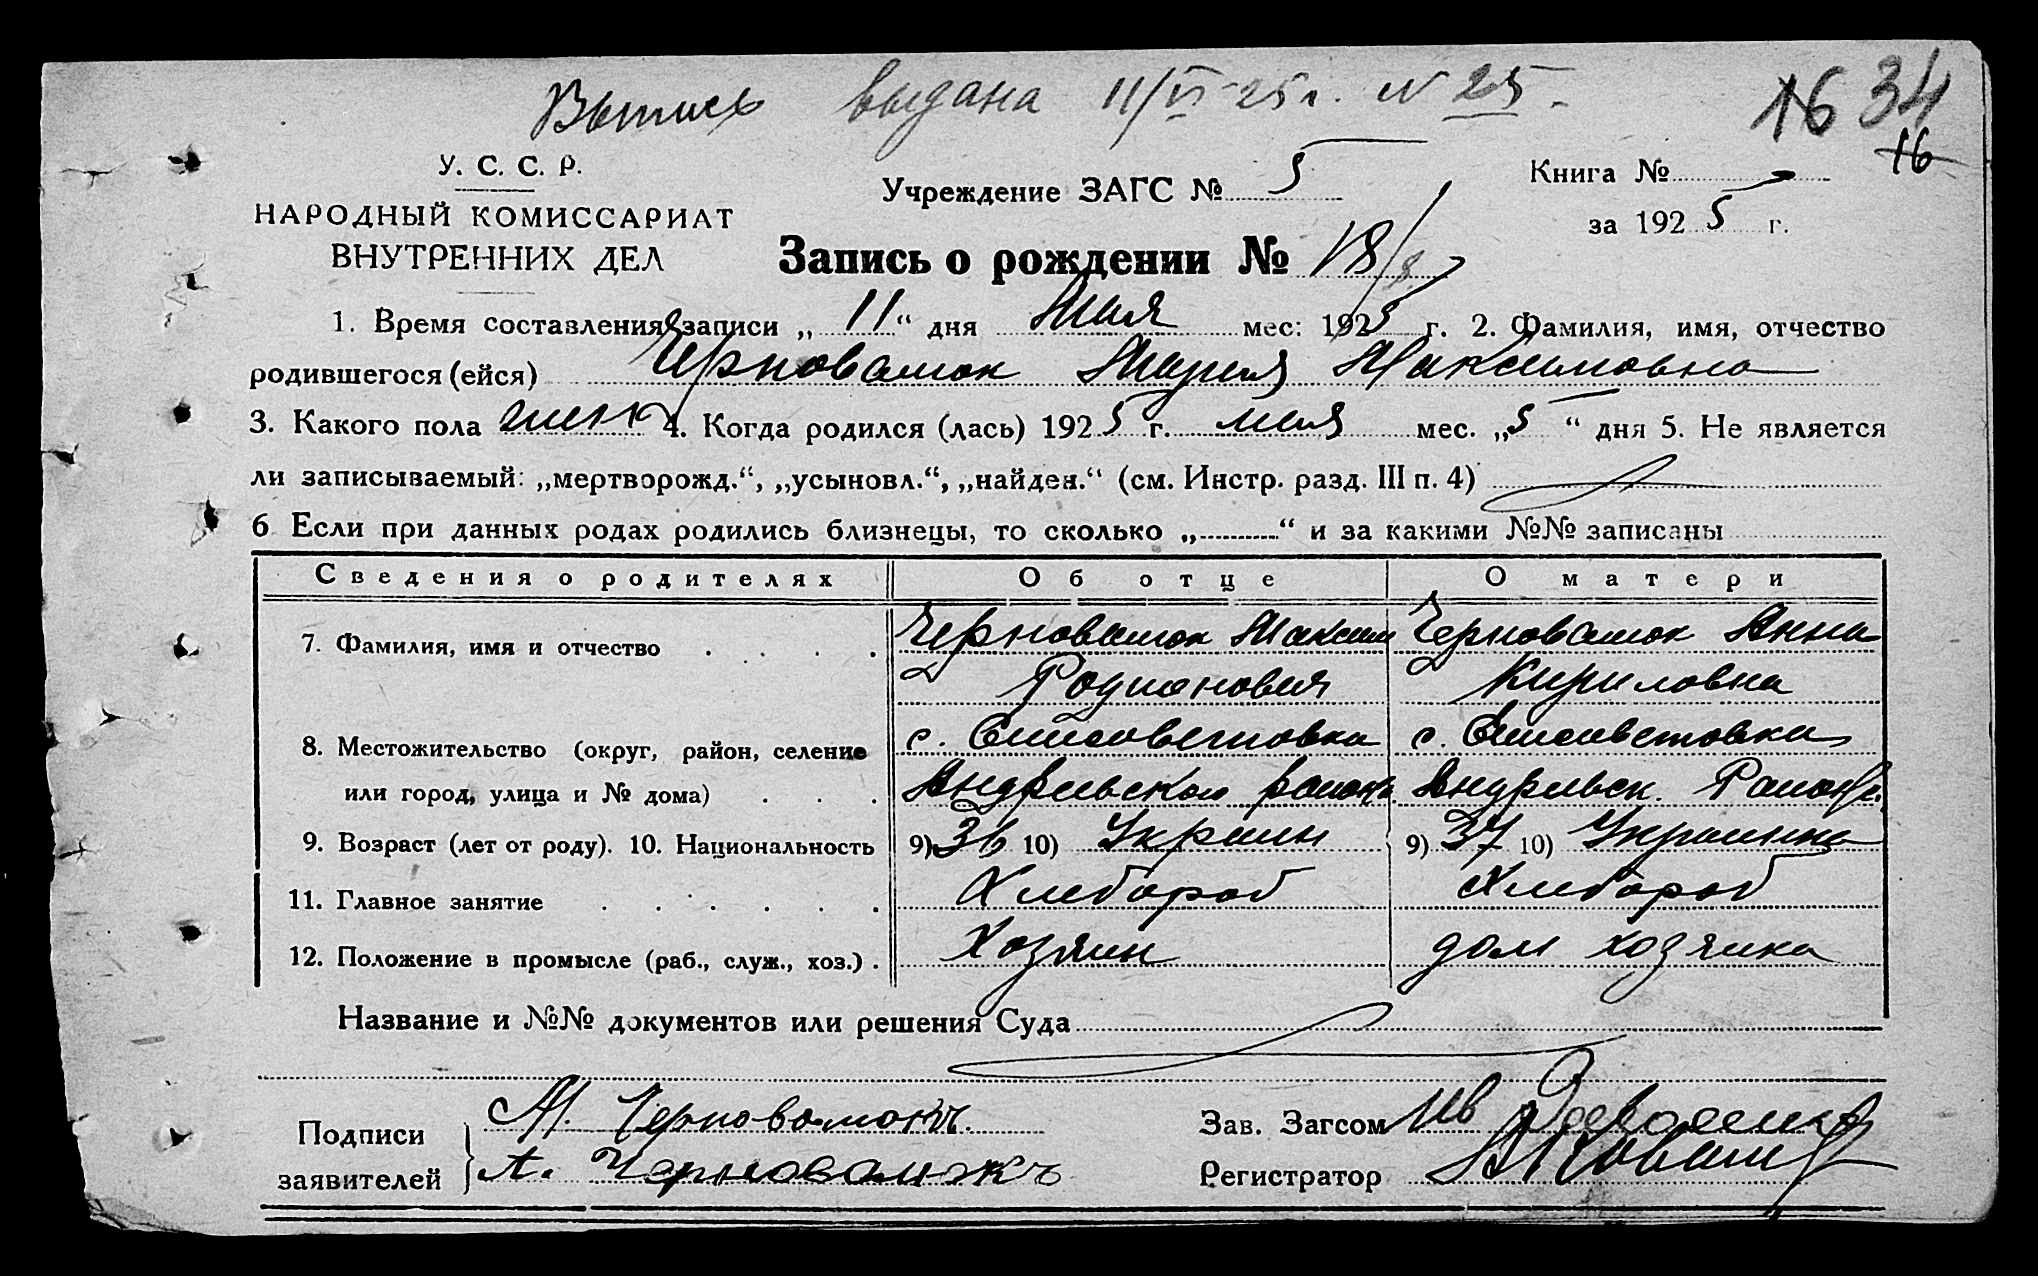 Выпись выдана 11/VI 25 г. N 25.
16 34
16
У. С. С. Р.
НАРОДНЫЙ КОМИССАРИАТ
ВНУТРЕННИХ ДЕЛ
Учреждение ЗАГС № 5
Книга №
за 1925 г.
Запись о рождении № 18/
1. Время составления записи „ 11 “ дня Мая мес: 1925 г. 2. Фамилия, имя, отчество
родившегося (ейся) Черновамок Мария Максимовна
3. Какого пола жен 4. Когда родился (лась) 1925 г. мая мес. „5“ дня 5. Не является
ли записываемый: „мертворожд.“, „усыновл.“, „найден.“ (см. Инстр. разд. III п. 4)
6 Если при данных родах родились близнецы, то сколько „..........“ и за какими №№ записаны
Сведения о родителях Об отце О матери
7. Фамилия, имя и отчество . . . . Черновамок Максим Черновамок Анна
Родионовия Кириловна
8. Местожительство (округ, район, селение с. Елисоветовка с. Елисаветовка
или город, улица и № дома) . . . района Района
9. Возраст (лет от роду). 10. Национальность 9) 36 10) Украин 9) 37 10) Украинка
11. Главное занятие . . . . . . Хлебороб Хлебороб
12. Положение в промысле (раб., служ., хоз.) . Хозяин дом хозяика
Название и №№ документов или решения Суда
Подписи заявителей
М. Черновамокъ.
А. Черновамокъ
Зав. Загсом
Регистратор